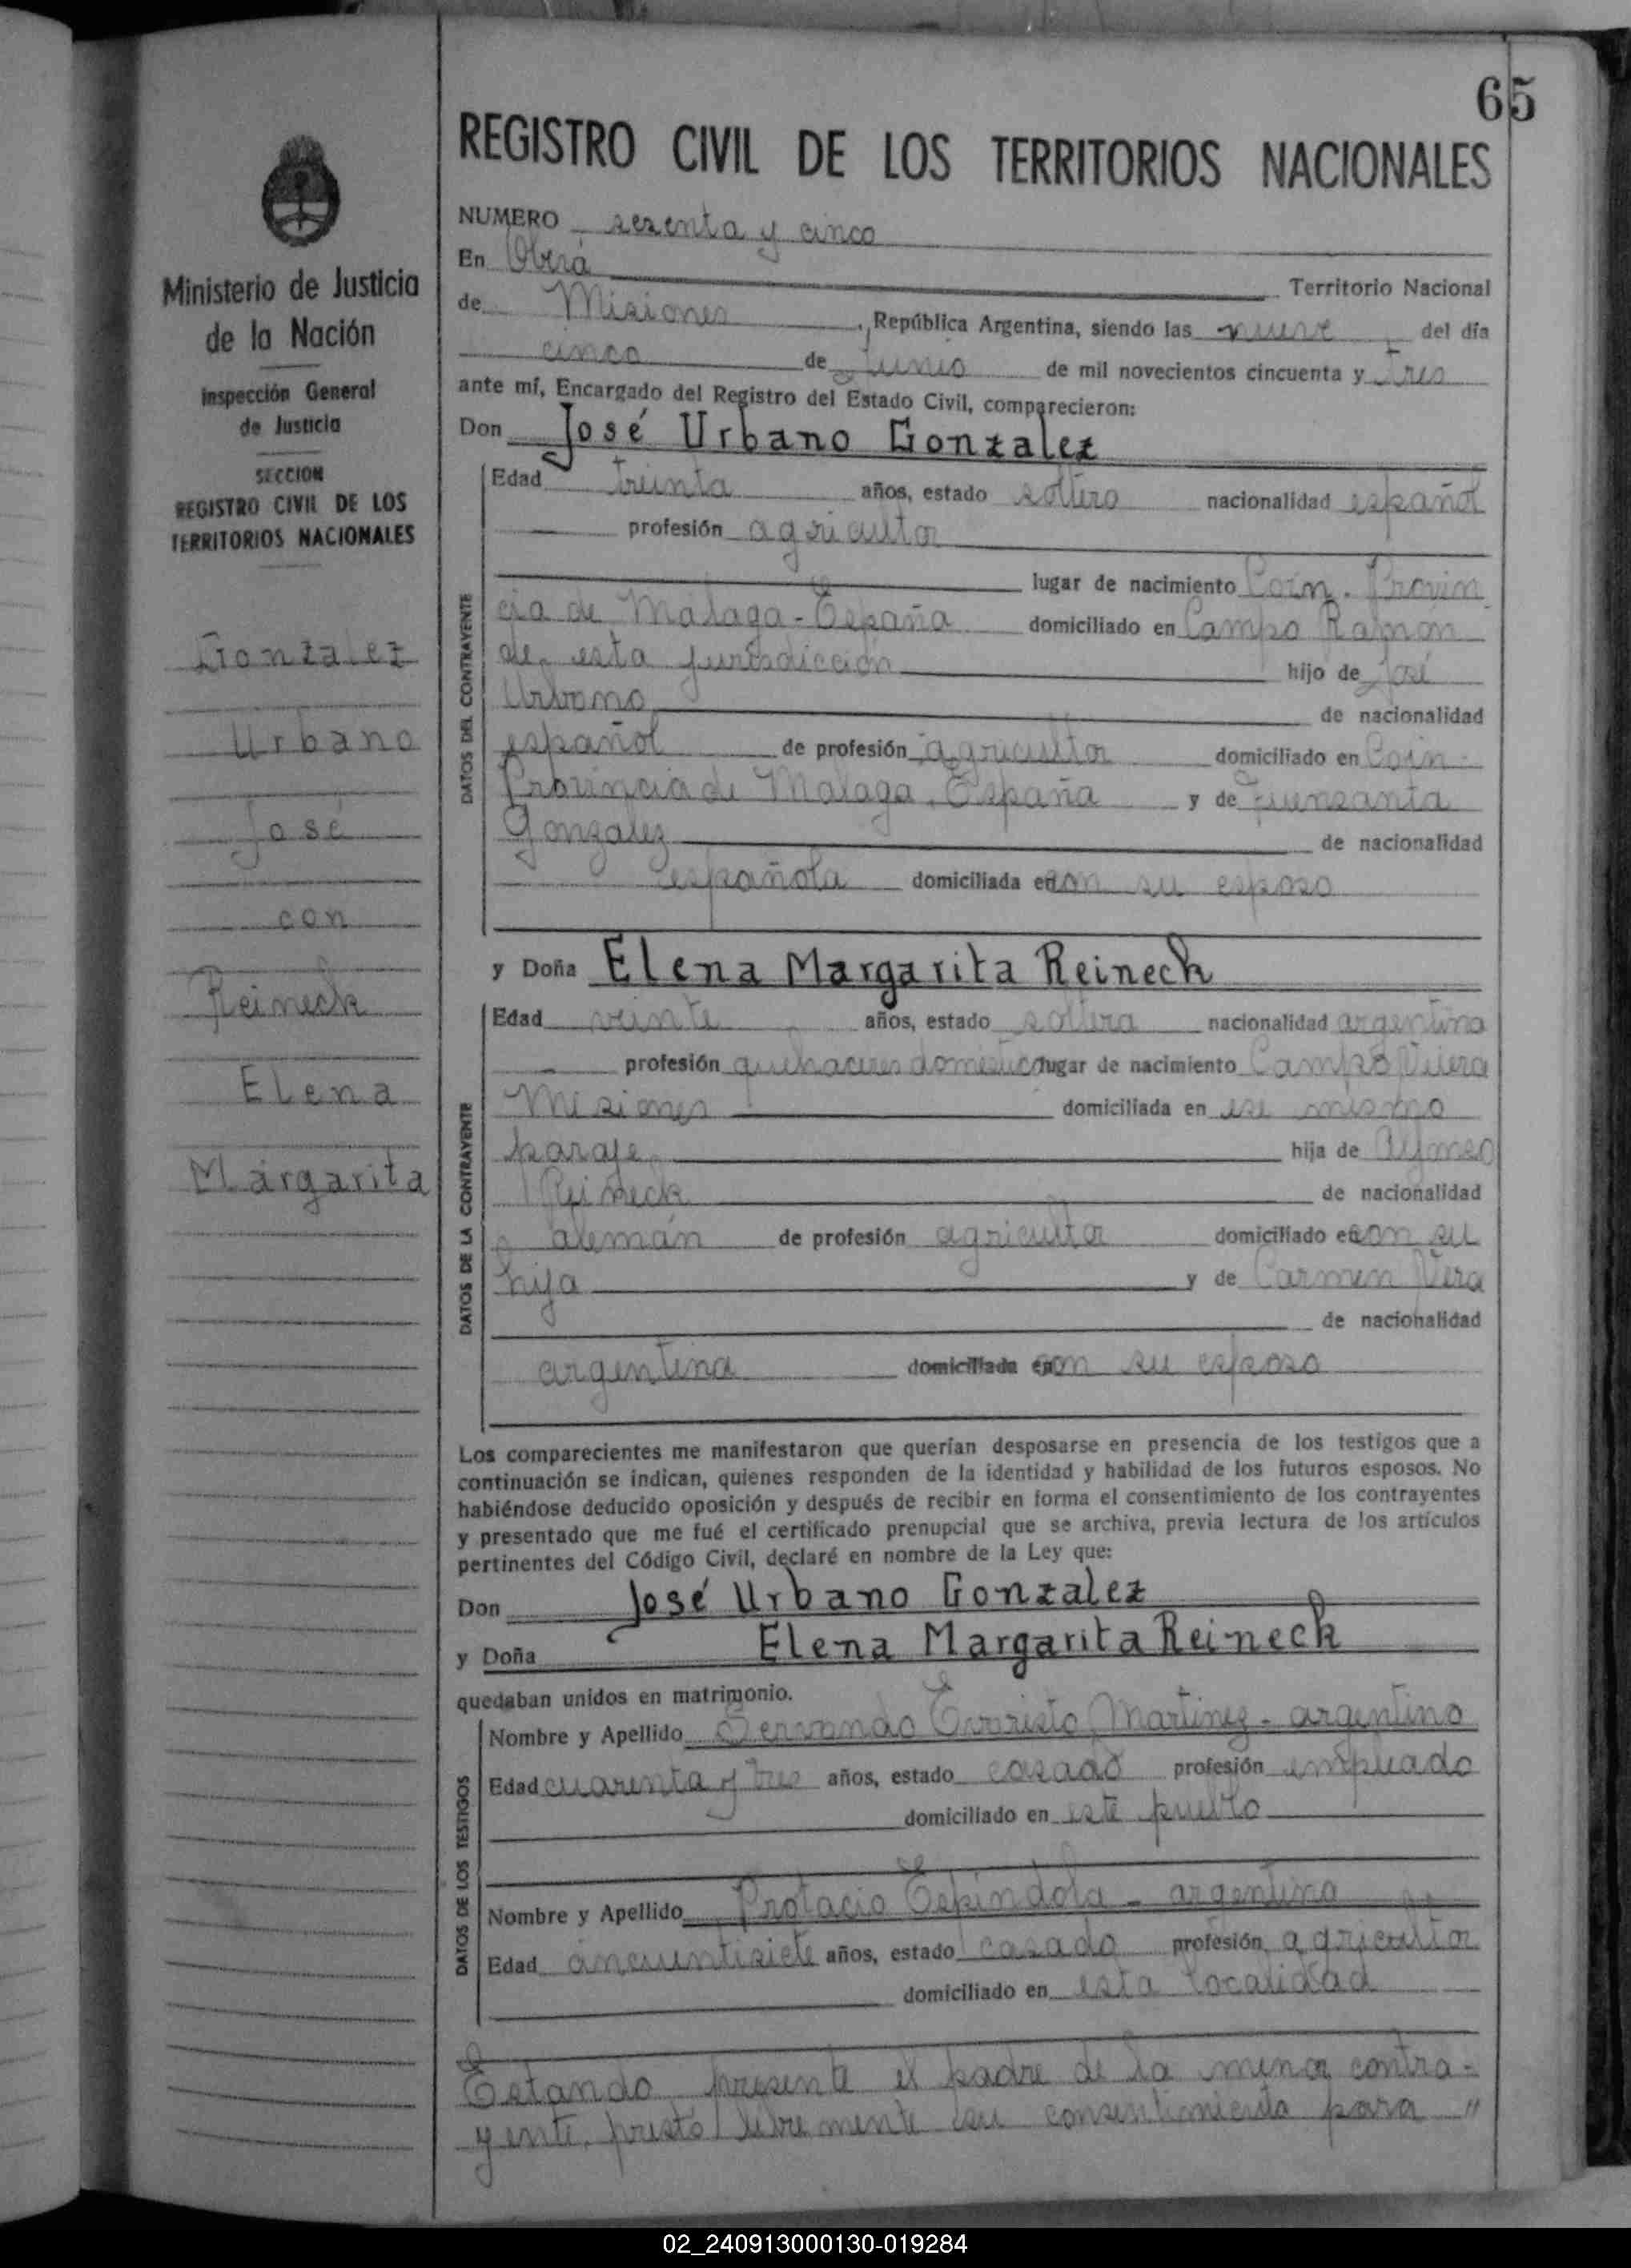 65
REGISTRO CIVIL DE LOS TERRITORIOS NACIONALES
Ministerio de Justicia
de la Nación
Inspección General
de Justicia
SECCION
REGISTRO CIVIL DE LOS
TERRITORIOS NACIONALES
Gonzalez
Urbano
José
con
Reineck
Elena
Margarita
NUMERO sesenta y cinco
En Oberá Territorio Nacional
de Misiones, República Argentina, siendo las nueve del día
cinco de Junio de mil novecientos cincuenta y tres
ante mí, Encargado del Registro del Estado Civil, comparecieron:
Don José Urbano Gonzalez
DATOS DEL CONTRAYENTE
Edad treinta años, estado soltero nacionalidad español
profesión agricultor
lugar de nacimiento Coín. Provin
cia de Málaga - España domiciliado en Campo Ramón
de esta jurisdicción hijo de José
Urbano de nacionalidad
español de profesión agricultor domiciliado en Coín -
Provincia de Malaga, España y de Fuensanta
Gonzalez de nacionalidad
española domiciliada en con su esposo
y Doña Elena Margarita Reineck
DATOS DE LA CONTRAYENTE
Edad veinte años, estado soltera nacionalidad argentina
profesión quehaceres domésticos lugar de nacimiento Campo Viera
Misiones domiciliada en ese mismo
paraje hija de Alfonso
Reineck de nacionalidad
alemán de profesión agricultor domiciliado en con su
hija y de Carmen Vera
de nacionalidad
argentina domiciliada en con su esposo
Los comparecientes me manifestaron que querían desposarse en presencia de los testigos que a
continuación se indican, quienes responden de la identidad y habilidad de los futuros esposos. No
habiéndose deducido oposición y después de recibir en forma el consentimiento de los contrayentes
y presentado que me fué el certificado prenupcial que se archiva, previa lectura de los artículos
pertinentes del Código Civil, declaré en nombre de la Ley que:
Don José Urbano Gonzalez
y Doña Elena Margarita Reineck
quedaban unidos en matrimonio.
DATOS DE LOS TESTIGOS
Nombre y Apellido Servando Evaristo Martinez - argentino
Edad cuarenta y tres años, estado casado profesión empleado
domiciliado en este pueblo
Nombre y Apellido Protacio Espíndola - argentino
Edad cincuentisiete años, estado casado profesión agricultor
domiciliado en esta localidad
Estando presente el padre de la menor contra-
yente, prestó libremente su consentimiento para "
02_240913000130-019284